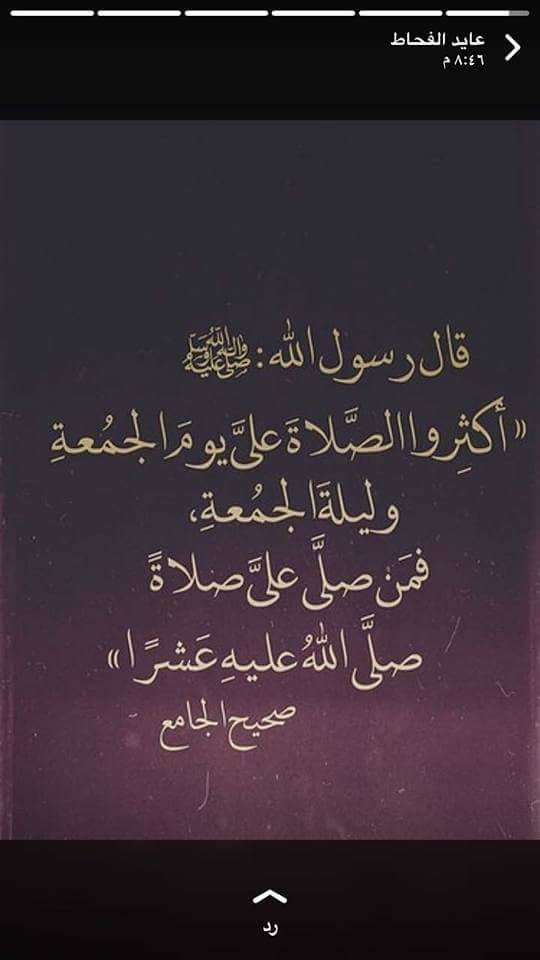 عايد الفحاط
٨:٤٦ م
قال رسول الله ﷺ:
«أكثِروا الصَّلاةَ عليَّ يومَ الجمُعةِ
وليلةَ الجمُعةِ،
فمَن صلَّى عليَّ صلاةً
صلَّى اللهُ عليهِ عَشرًا»
صحيح الجامع
رد